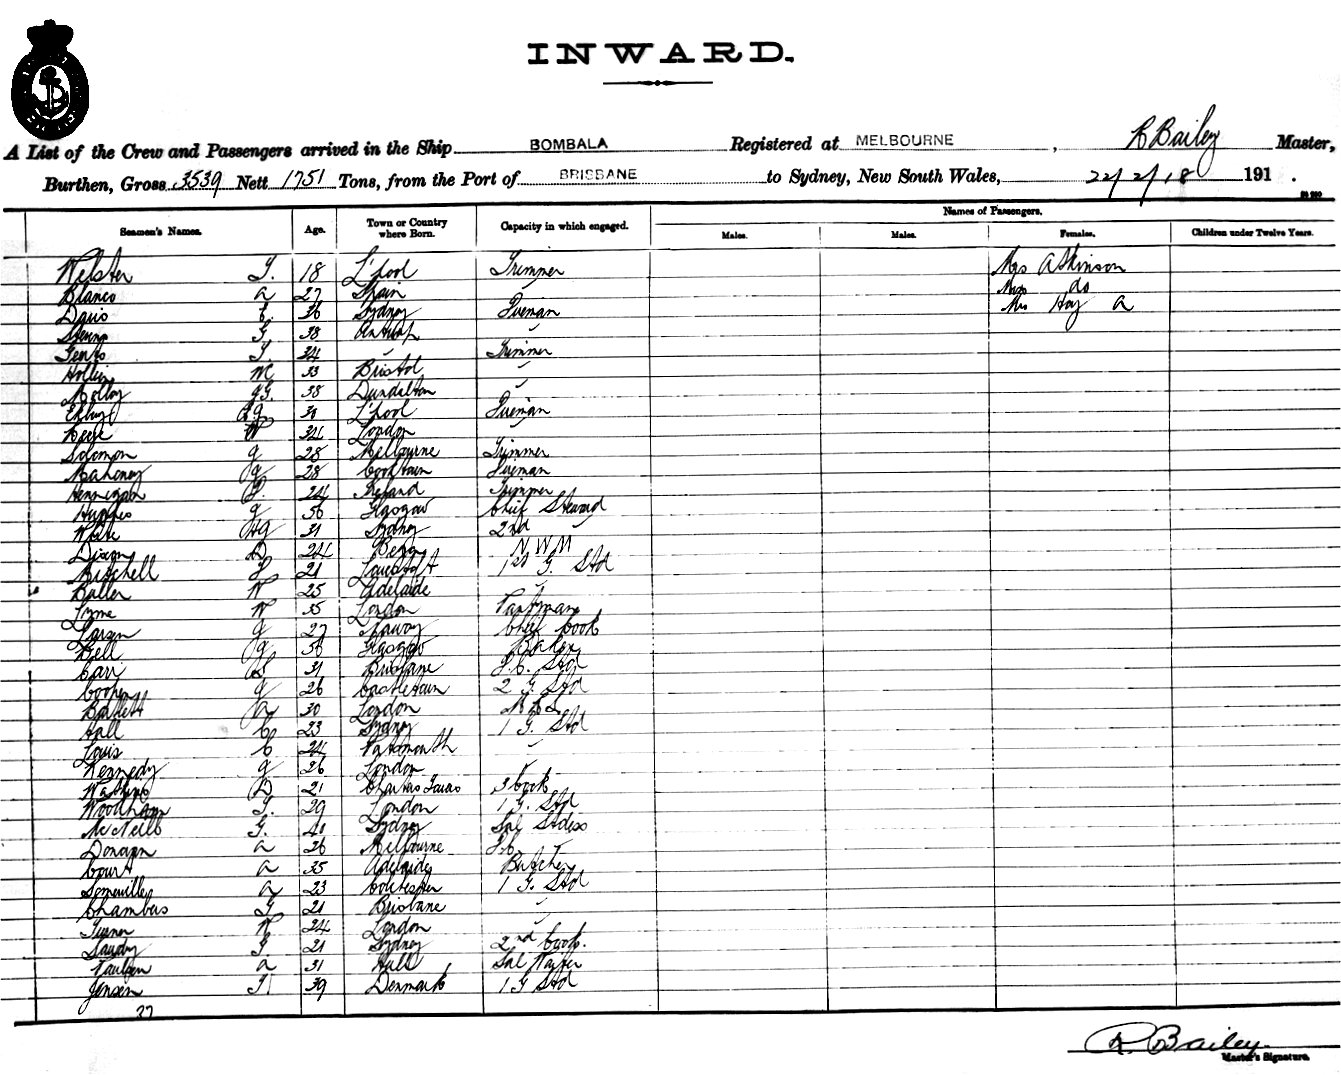 INWARD.
A List of the Crew and Passengers arrived in the Ship BOMBALA Registered at MELBOURNE , R Bailey Master,
Burthen, Gross 3539 Nett 1751 Tons, from the Port of BRISBANE to Sydney, New South Wales, 22/2/18 191 .
Names of Passengers.
Seamen's Names. Age. Town or Country where Born. Capacity in which engaged. Males. Males. Females. Children under Twelve Years.
Webster T. 18 L'pool Trimmer Mrs Atkinson
Blanco A 27 Spain " Miss do
Davis 36 Sydney Fireman Mrs Hay A
G 38 Antwerp "
T. 34 " Trimmer
M 33 Bristol "
Molloy 38 "
30 L'pool Fireman
W 34 London "
Solomon G 28 Melbourne Trimmer
Mahoney G 28 Cooktown Fireman
Hennigan 24 Ireland Trimmer
Hughes G 56 Glasgow Chief Steward
White HG 31 Sydney 2nd "
Dixon D 24 N W M
Mitchell 21 Lowestoft 1st G Std
W 25 Adelaide "
Lyme W 35 London Pantryman
Larsen G 27 Norway Chief Cook
Bell G 56 Glasgow Baker
Carr 31 Brisbane F.C. Std
Cooper G 26 Castletown 2 G Std
Bartlett A 30 London
Hall C 23 Sydney 1 G. Std
Louis C 24 "
Kennedy G 26 London "
Watkins D 21 Charters Towers 3 Cook
Woodham T. 29 London 1 G. Std
McNeill G. 40 Sydney Sal Stdess
Donavan A 26 Melbourne F.C. "
Court A 35 Adelaide Butcher
Somerville A 23 Colchester 1 G. Std
Chambers G 21 Brisbane "
Turner W 24 London "
Saudry G 21 Sydney 2nd Cook.
Paulsen A 31 Hull Sal Waiter
Jensen H 39 Denmark 1 G Std
37
R. Bailey.
Master's Signature.